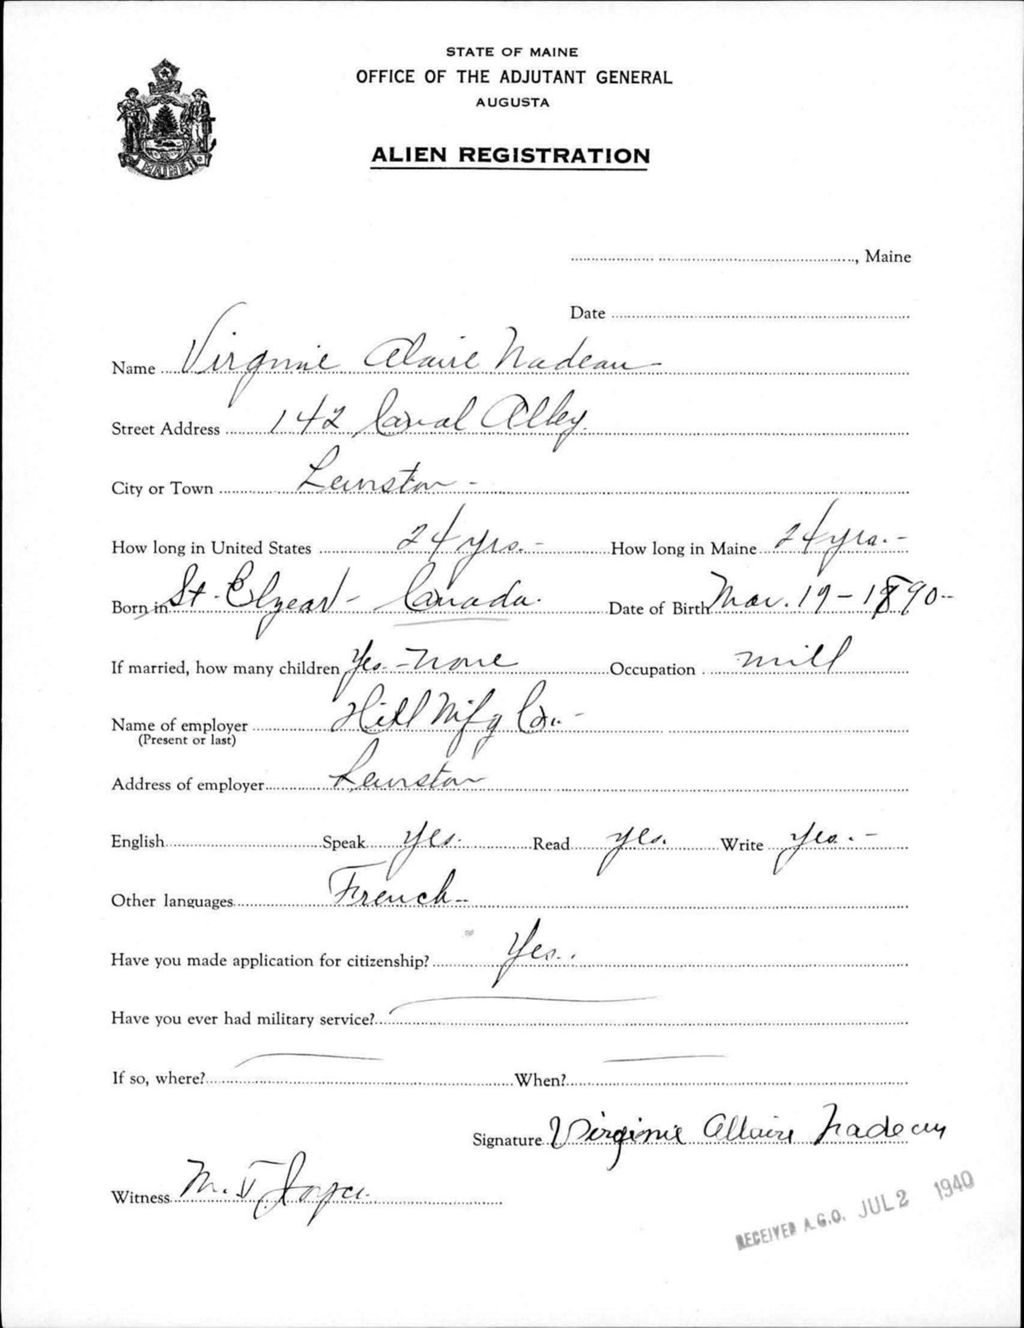 STATE OF MAINE
OFFICE OF THE ADJUTANT GENERAL
AUGUSTA
ALIEN REGISTRATION
MAINE
, Maine
Date
Name Virginie Alaire Nadeau
Street Address 142 Canal Alley
City or Town Lewiston -
How long in United States 24 yrs. - How long in Maine 24 yrs. -
Born in St. Elzear - Canada. Date of Birth Mar. 19 - 1890 -
If married, how many children Yes - none Occupation mill
Name of employer Hill Mfg Co. -
(Present or last)
Address of employer Lewiston
English Speak Yes. Read yes. Write Yes. -
Other languages French -
Have you made application for citizenship? Yes.
Have you ever had military service?
If so, where? When?
Signature Virginie Allaire Nadeau
Witness M. J. Joyce
RECEIVED A.G.O. JUL 2 1940